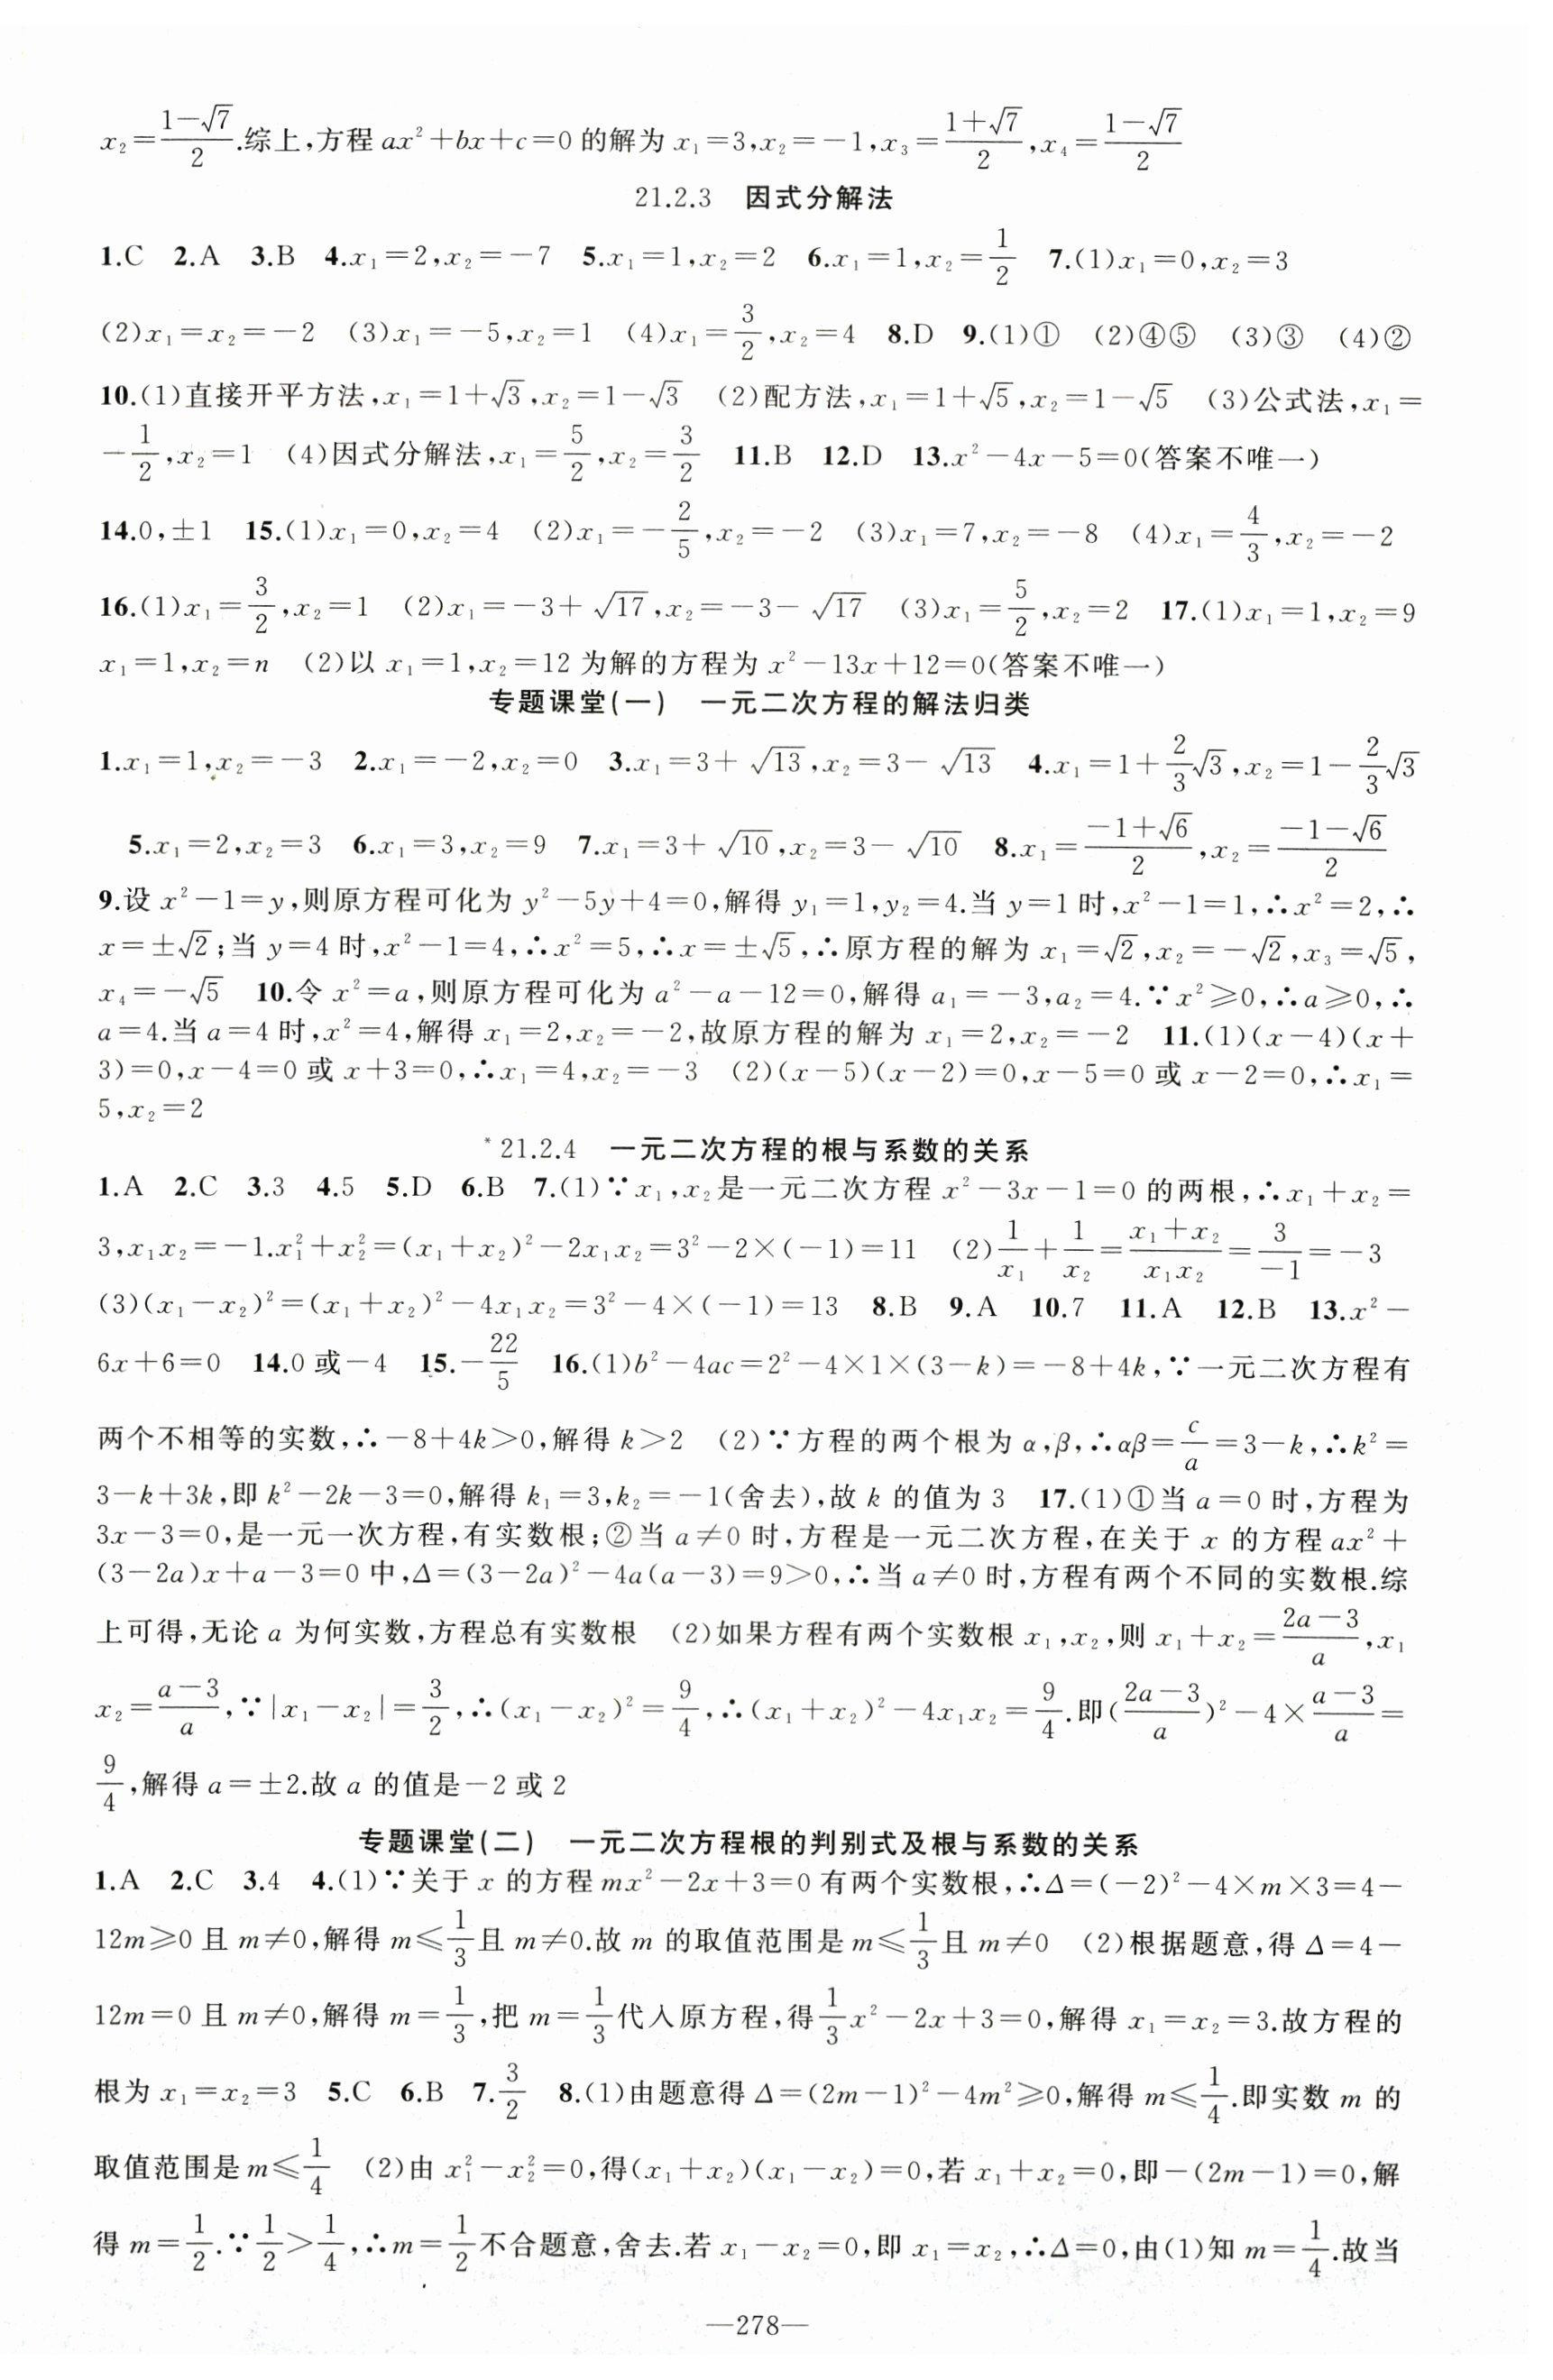 x₂=(1−√7)/2.综上,方程 ax²+bx+c=0 的解为 x₁=3,x₂=−1,x₃=(1+√7)/2,x₄=(1−√7)/2
21.2.3 因式分解法
1.C 2.A 3.B 4.x₁=2,x₂=−7 5.x₁=1,x₂=2 6.x₁=1,x₂=1/2 7.(1)x₁=0,x₂=3
(2)x₁=x₂=−2 (3)x₁=−5,x₂=1 (4)x₁=3/2,x₂=4 8.D 9.(1)① (2)④⑤ (3)③ (4)②
10.(1)直接开平方法,x₁=1+√3,x₂=1−√3 (2)配方法,x₁=1+√5,x₂=1−√5 (3)公式法,x₁=
−1/2,x₂=1 (4)因式分解法,x₁=5/2,x₂=3/2 11.B 12.D 13.x²−4x−5=0(答案不唯一)
14.0,±1 15.(1)x₁=0,x₂=4 (2)x₁=−2/5,x₂=−2 (3)x₁=7,x₂=−8 (4)x₁=4/3,x₂=−2
16.(1)x₁=3/2,x₂=1 (2)x₁=−3+√17,x₂=−3−√17 (3)x₁=5/2,x₂=2 17.(1)x₁=1,x₂=9
x₁=1,x₂=n (2)以 x₁=1,x₂=12 为解的方程为 x²−13x+12=0(答案不唯一)
专题课堂(一) 一元二次方程的解法归类
1.x₁=1,x₂=−3 2.x₁=−2,x₂=0 3.x₁=3+√13,x₂=3−√13 4.x₁=1+2/3√3,x₂=1−2/3√3
5.x₁=2,x₂=3 6.x₁=3,x₂=9 7.x₁=3+√10,x₂=3−√10 8.x₁=(−1+√6)/2,x₂=(−1−√6)/2
9.设 x²−1=y,则原方程可化为 y²−5y+4=0,解得 y₁=1,y₂=4.当 y=1 时,x²−1=1,∴x²=2,∴
x=±√2;当 y=4 时,x²−1=4,∴x²=5,∴x=±√5,∴原方程的解为 x₁=√2,x₂=−√2,x₃=√5,
x₄=−√5 10.令 x²=a,则原方程可化为 a²−a−12=0,解得 a₁=−3,a₂=4.∵x²≥0,∴a≥0,∴
a=4.当 a=4 时,x²=4,解得 x₁=2,x₂=−2,故原方程的解为 x₁=2,x₂=−2 11.(1)(x−4)(x+
3)=0,x−4=0 或 x+3=0,∴x₁=4,x₂=−3 (2)(x−5)(x−2)=0,x−5=0 或 x−2=0,∴x₁=
5,x₂=2
*21.2.4 一元二次方程的根与系数的关系
1.A 2.C 3.3 4.5 5.D 6.B 7.(1)∵x₁,x₂是一元二次方程 x²−3x−1=0 的两根,∴x₁+x₂=
3,x₁x₂=−1.x₁²+x₂²=(x₁+x₂)²−2x₁x₂=3²−2×(−1)=11 (2)1/x₁+1/x₂=(x₁+x₂)/(x₁x₂)=3/(−1)=−3
(3)(x₁−x₂)²=(x₁+x₂)²−4x₁x₂=3²−4×(−1)=13 8.B 9.A 10.7 11.A 12.B 13.x²−
6x+6=0 14.0 或−4 15.−22/5 16.(1)b²−4ac=2²−4×1×(3−k)=−8+4k,∵一元二次方程有
两个不相等的实数,∴−8+4k>0,解得 k>2 (2)∵方程的两个根为 α,β,∴αβ=c/a=3−k,∴k²=
3−k+3k,即 k²−2k−3=0,解得 k₁=3,k₂=−1(舍去),故 k 的值为 3 17.(1)①当 a=0 时,方程为
3x−3=0,是一元一次方程,有实数根;②当 a≠0 时,方程是一元二次方程,在关于 x 的方程 ax²+
(3−2a)x+a−3=0 中,Δ=(3−2a)²−4a(a−3)=9>0,∴当 a≠0 时,方程有两个不同的实数根.综
上可得,无论 a 为何实数,方程总有实数根 (2)如果方程有两个实数根 x₁,x₂,则 x₁+x₂=(2a−3)/a,x₁
x₂=(a−3)/a,∵|x₁−x₂|=3/2,∴(x₁−x₂)²=9/4,∴(x₁+x₂)²−4x₁x₂=9/4.即((2a−3)/a)²−4×(a−3)/a=
9/4,解得 a=±2.故 a 的值是−2 或 2
专题课堂(二) 一元二次方程根的判别式及根与系数的关系
1.A 2.C 3.4 4.(1)∵关于 x 的方程 mx²−2x+3=0 有两个实数根,∴Δ=(−2)²−4×m×3=4−
12m≥0 且 m≠0,解得 m≤1/3且 m≠0.故 m 的取值范围是 m≤1/3且 m≠0 (2)根据题意,得 Δ=4−
12m=0 且 m≠0,解得 m=1/3,把 m=1/3代入原方程,得1/3x²−2x+3=0,解得 x₁=x₂=3.故方程的
根为 x₁=x₂=3 5.C 6.B 7.3/2 8.(1)由题意得 Δ=(2m−1)²−4m²≥0,解得 m≤1/4.即实数 m 的
取值范围是 m≤1/4 (2)由 x₁²−x₂²=0,得(x₁+x₂)(x₁−x₂)=0,若 x₁+x₂=0,即−(2m−1)=0,解
得 m=1/2.∵1/2>1/4,∴m=1/2不合题意,舍去.若 x₁−x₂=0,即 x₁=x₂,∴Δ=0,由(1)知 m=1/4.故当
—278—